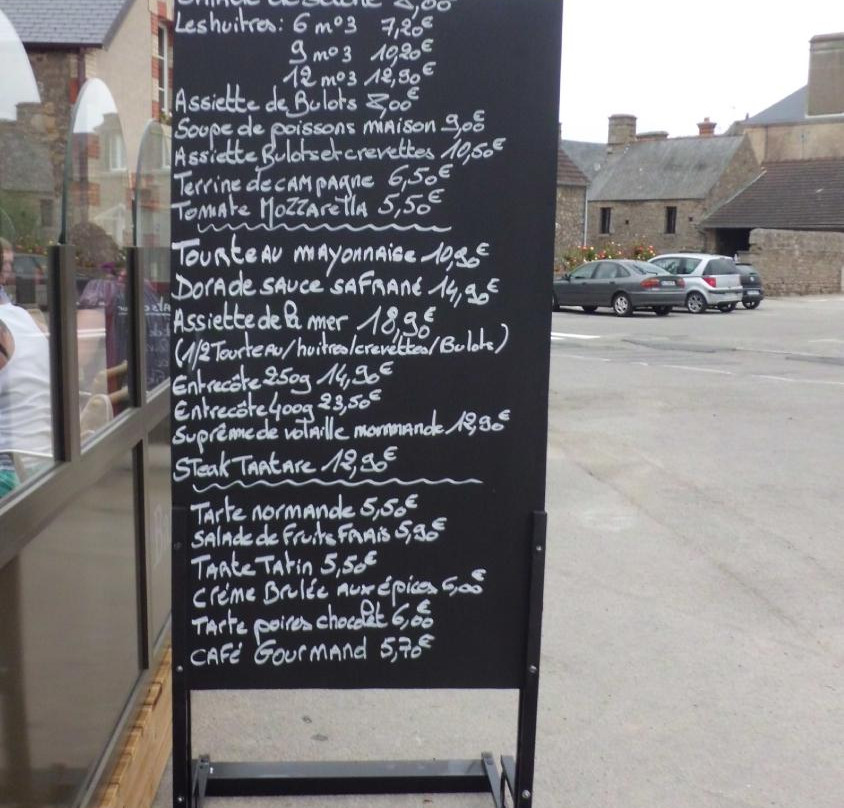 Les huitres: 6 n°3 7,20€
9 n°3 10,20€
12 n°3 12,90€
Assiette de Bulots 8,00€
Soupe de poissons maison 9,00€
Assiette Bulots et crevettes 10,50€
Terrine de campagne 6,50€
Tomate Mozzarella 5,50€
Tourteau mayonnaise 10,90€
Dorade sauce safrané 14,90€
Assiette de la mer 18,90€
(1/2 Tourteau/huitres/crevettes/Bulots)
Entrecôte 250g 14,90€
Entrecôte 400g 23,50€
Suprême de volaille normande 12,90€
Steak Tartare 12,90€
Tarte normande 5,50€
Salade de Fruits Frais 5,90€
Tarte Tatin 5,50€
Créme Brulée aux épices 6,00€
Tarte poires chocolat 6,00€
Café Gourmand 5,70€